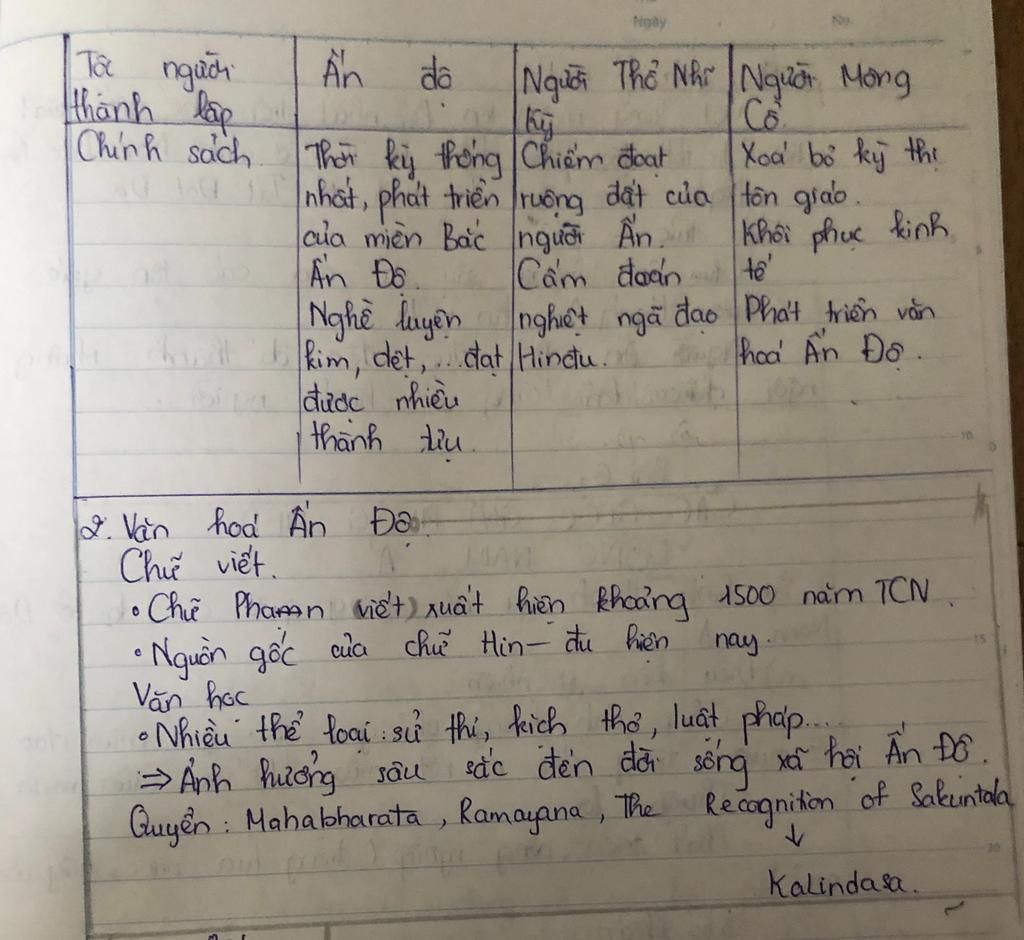 Ngày No.
Tộc người thành lập | Ấn độ | Người Thổ Nhĩ Kỳ | Người Mông Cổ
Chính sách | Thời kỳ thống nhất, phát triển của miền Bắc Ấn Độ. Nghề luyện kim, dệt, ... đạt được nhiều thành tựu. | Chiếm đoạt ruộng đất của người Ấn. Cấm đoán nghiệt ngã đạo Hindu. | Xoá bỏ kỳ thị tôn giáo. Khôi phục kinh tế Phát triển văn hoá Ấn Độ.
2. Văn hoá Ấn Độ.
Chữ viết.
• Chữ Phạn viết) xuất hiện khoảng 1500 năm TCN.
• Nguồn gốc của chữ Hin-đu hiện nay.
Văn học
• Nhiều thể loại: sử thi, kịch thơ, luật pháp...
⇒ Ảnh hưởng sâu sắc đến đời sống xã hội Ấn Độ.
Quyển: Mahabharata, Ramayana, The Recognition of Sakuntala
↓
Kalindasa.